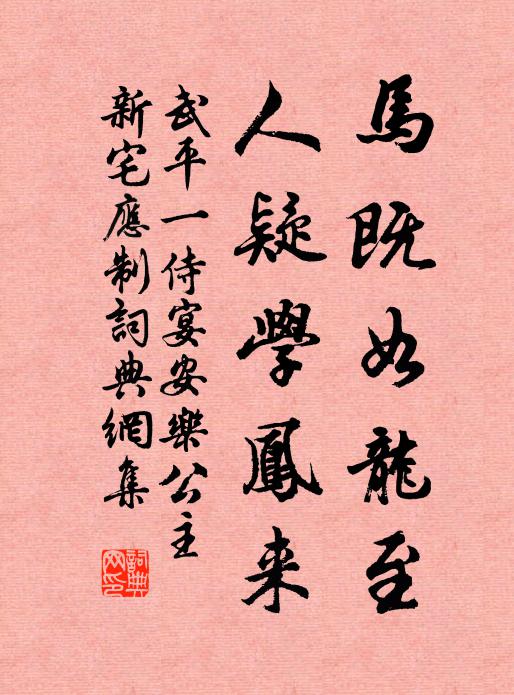 馬既如龍至
人疑學鳳来
武平一侍宴安樂公主
新宅應制詞典網集
詞典網印